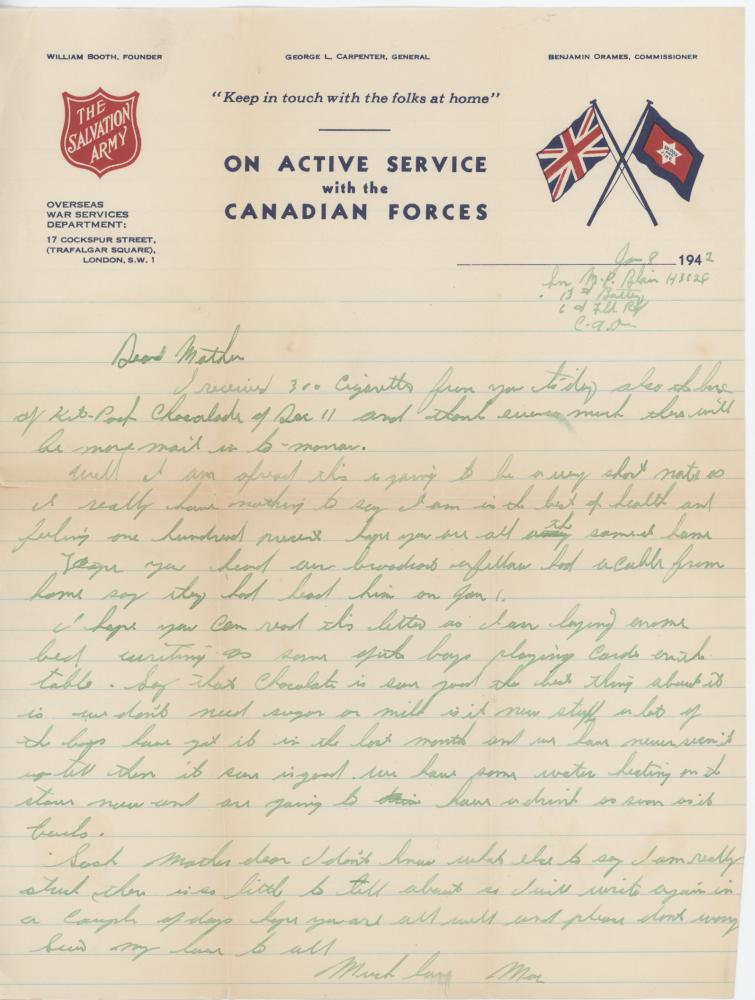 WILLIAM BOOTH, FOUNDER
GEORGE L. CARPENTER, GENERAL
BENJAMIN ORAMES, COMMISSIONER
THE
SALVATION
ARMY
"Keep in touch with the folks at home"
ON ACTIVE SERVICE
with the
CANADIAN FORCES
OVERSEAS
WAR SERVICES
DEPARTMENT:
17 COCKSPUR STREET,
(TRAFALGAR SQUARE),
LONDON, S.W. 1
Jan 8 1942
M. P. Blain
13 Battery
6 Fld
C.A.O.
Dear Mother
I received 300 Cigaretts from you to day also the box
of Chocolade of Dec 11 and thank much there will
be more mail in to-morrow.
Well I am afraid this is going to be a very short note as
I really have nothing to say I am in the best of health and
feeling one hundred present hope you are all the same at home
Hope you heard our broadcast a fellow had a cable from
home say they had him on Jan 1.
I hope you can read this letter as I am laying
bed writing as some of the boys playing cards on the
table. Say that Chocolate is sure good the best thing about it
is we don't need sugar or milk is it new stuff a lot of
the boys have got it in the last month and we have never
till then it sure is good. We have some water heating on the
stove now and are going to have a drink as soon as it
boils.
Mother dear I don't know what else to say I am really
stuck there is so little to tell about so I will write again in
a couple of days hope you are all well and please don't worry
my love to all
Much love Mac